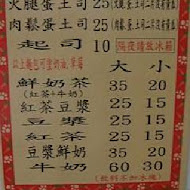 火腿蛋土司 25
肉鬆蛋土司 25
起司 10 隔夜請放冰箱
大 小
鮮奶茶 35 20
(紅茶+牛奶)
紅茶豆漿 25 15
豆漿 25 15
紅茶 25 15
豆漿鮮奶 35 20
牛奶 60 30